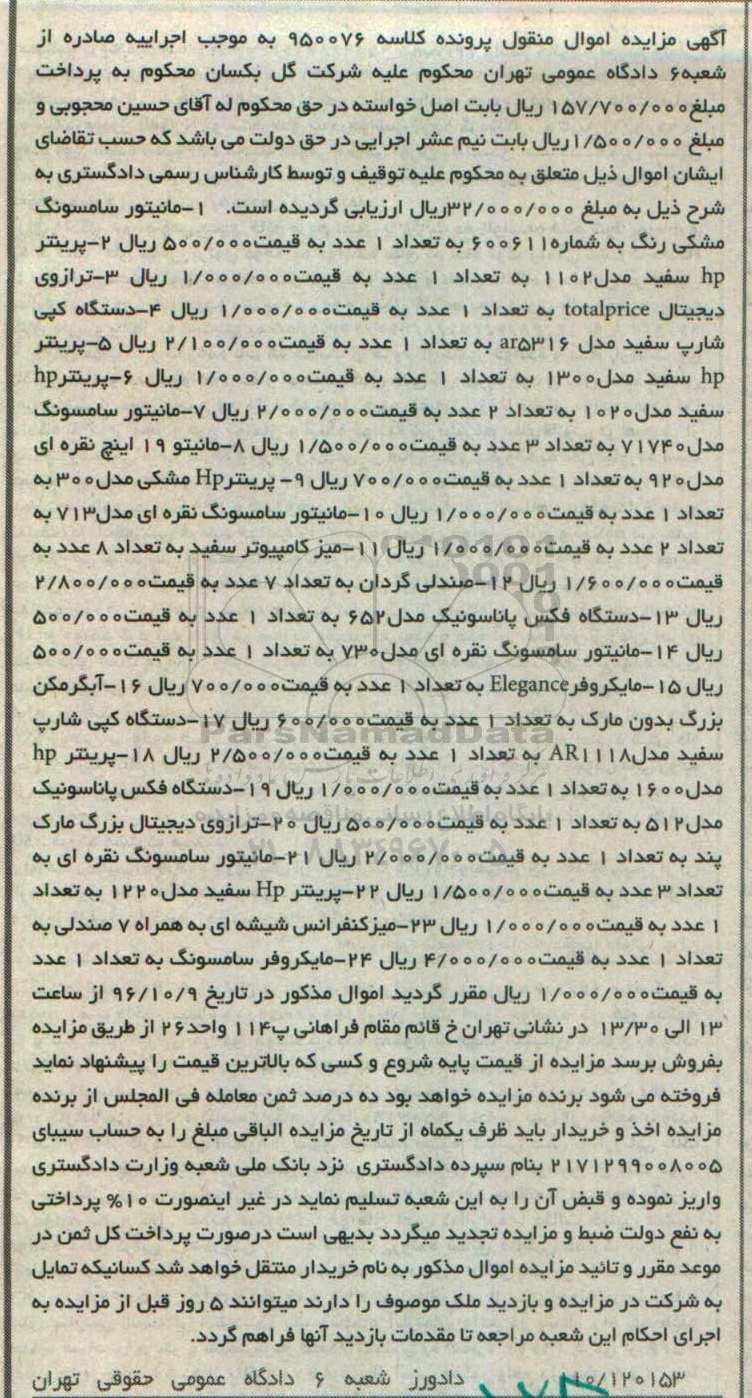 آگهی مزایده اموال منقول پرونده کلاسه ۹۵۰۰۷۶ به موجب اجراییه صادره از
شعبه۶ دادگاه عمومی تهران محکوم علیه شرکت گل بکسان محکوم به پرداخت
مبلغ۱۵۷/۷۰۰/۰۰۰ ریال بابت اصل خواسته در حق محکوم له آقای حسین محجوبی و
مبلغ ۱/۵۰۰/۰۰۰ریال بابت نیم عشر اجرایی در حق دولت می باشد که حسب تقاضای
ایشان اموال ذیل متعلق به محکوم علیه توقیف و توسط کارشناس رسمی دادگستری به
شرح ذیل به مبلغ ۳۲/۰۰۰/۰۰۰ریال ارزیابی گردیده است. ۱-مانیتور سامسونگ
مشکی رنگ به شماره۶۰۰۶۱۱ به تعداد ۱ عدد به قیمت۵۰۰/۰۰۰ ریال ۲-پرینتر
hp سفید مدل۱۱۰۲ به تعداد ۱ عدد به قیمت۱/۰۰۰/۰۰۰ ریال ۳-ترازوی
دیجیتال totalprice به تعداد ۱ عدد به قیمت۱/۰۰۰/۰۰۰ ریال ۴-دستگاه کپی
شارپ سفید مدل ar۵۳۱۶ به تعداد ۱ عدد به قیمت۲/۱۰۰/۰۰۰ ریال ۵-پرینتر
hp سفید مدل۱۳۰۰ به تعداد ۱ عدد به قیمت۱/۰۰۰/۰۰۰ ریال ۶-پرینترhp
سفید مدل۱۰۲۰ به تعداد ۲ عدد به قیمت۲/۰۰۰/۰۰۰ ریال ۷-مانیتور سامسونگ
مدل۷۱۷۴۰ به تعداد ۳ عدد به قیمت۱/۵۰۰/۰۰۰ ریال ۸-مانیتو ۱۹ اینچ نقره ای
مدل۹۲۰ به تعداد ۱ عدد به قیمت۷۰۰/۰۰۰ ریال ۹- پرینترHp مشکی مدل۳۰۰ به
تعداد ۱ عدد به قیمت۱/۰۰۰/۰۰۰ ریال ۱۰-مانیتور سامسونگ نقره ای مدل۷۱۳ به
تعداد ۲ عدد به قیمت۱/۰۰۰/۰۰۰ ریال ۱۱-میز کامپیوتر سفید به تعداد ۸ عدد به
قیمت۱/۶۰۰/۰۰۰ ریال ۱۲-صندلی گردان به تعداد ۷ عدد به قیمت۲/۸۰۰/۰۰۰
ریال ۱۳-دستگاه فکس پاناسونیک مدل۶۵۲ به تعداد ۱ عدد به قیمت۵۰۰/۰۰۰
ریال ۱۴-مانیتور سامسونگ نقره ای مدل۷۳۰ به تعداد ۱ عدد به قیمت۵۰۰/۰۰۰
ریال ۱۵-مایکروفرElegance به تعداد ۱ عدد به قیمت۷۰۰/۰۰۰ ریال ۱۶-آبگرمکن
بزرگ بدون مارک به تعداد ۱ عدد به قیمت۶۰۰/۰۰۰ ریال ۱۷-دستگاه کپی شارپ
سفید مدلAR۱۱۱۸ به تعداد ۱ عدد به قیمت۲/۵۰۰/۰۰۰ ریال ۱۸-پرینتر hp
مدل۱۶۰۰ به تعداد ۱ عدد به قیمت۱/۰۰۰/۰۰۰ ریال ۱۹-دستگاه فکس پاناسونیک
مدل۵۱۲ به تعداد ۱ عدد به قیمت۵۰۰/۰۰۰ ریال ۲۰-ترازوی دیجیتال بزرگ مارک
پند به تعداد ۱ عدد به قیمت۲/۰۰۰/۰۰۰ ریال ۲۱-مانیتور سامسونگ نقره ای به
تعداد ۳ عدد به قیمت۱/۵۰۰/۰۰۰ ریال ۲۲-پرینتر Hp سفید مدل۱۲۲۰ به تعداد
۱ عدد به قیمت۱/۰۰۰/۰۰۰ ریال ۲۳-میزکنفرانس شیشه ای به همراه ۷ صندلی به
تعداد ۱ عدد به قیمت۴/۰۰۰/۰۰۰ ریال ۲۴-مایکروفر سامسونگ به تعداد ۱ عدد
به قیمت۱/۰۰۰/۰۰۰ ریال مقرر گردید اموال مذکور در تاریخ ۹۶/۱۰/۹ از ساعت
۱۳ الی ۱۳/۳۰ در نشانی تهران خ قائم مقام فراهانی پ۱۱۴ واحد۲۶ از طریق مزایده
بفروش برسد مزایده از قیمت پایه شروع و کسی که بالاترین قیمت را پیشنهاد نماید
فروخته می شود برنده مزایده خواهد بود ده درصد ثمن معامله فی المجلس از برنده
مزایده اخذ و خریدار باید ظرف یکماه از تاریخ مزایده الباقی مبلغ را به حساب سیبای
۲۱۷۱۲۹۹۰۰۸۰۰۵ بنام سپرده دادگستری نزد بانک ملی شعبه وزارت دادگستری
واریز نموده و قبض آن را به این شعبه تسلیم نماید در غیر اینصورت ۱۰% پرداختی
به نفع دولت ضبط و مزایده تجدید میگردد بدیهی است درصورت پرداخت کل ثمن در
موعد مقرر و تائید مزایده اموال مذکور به نام خریدار منتقل خواهد شد کسانیکه تمایل
به شرکت در مزایده و بازدید ملک موصوف را دارند میتوانند ۵ روز قبل از مزایده به
اجرای احکام این شعبه مراجعه تا مقدمات بازدید آنها فراهم گردد.
۱۰/۱۲۰۱۵۳ دادورز شعبه ۶ دادگاه عمومی حقوقی تهران
ParsNamadData